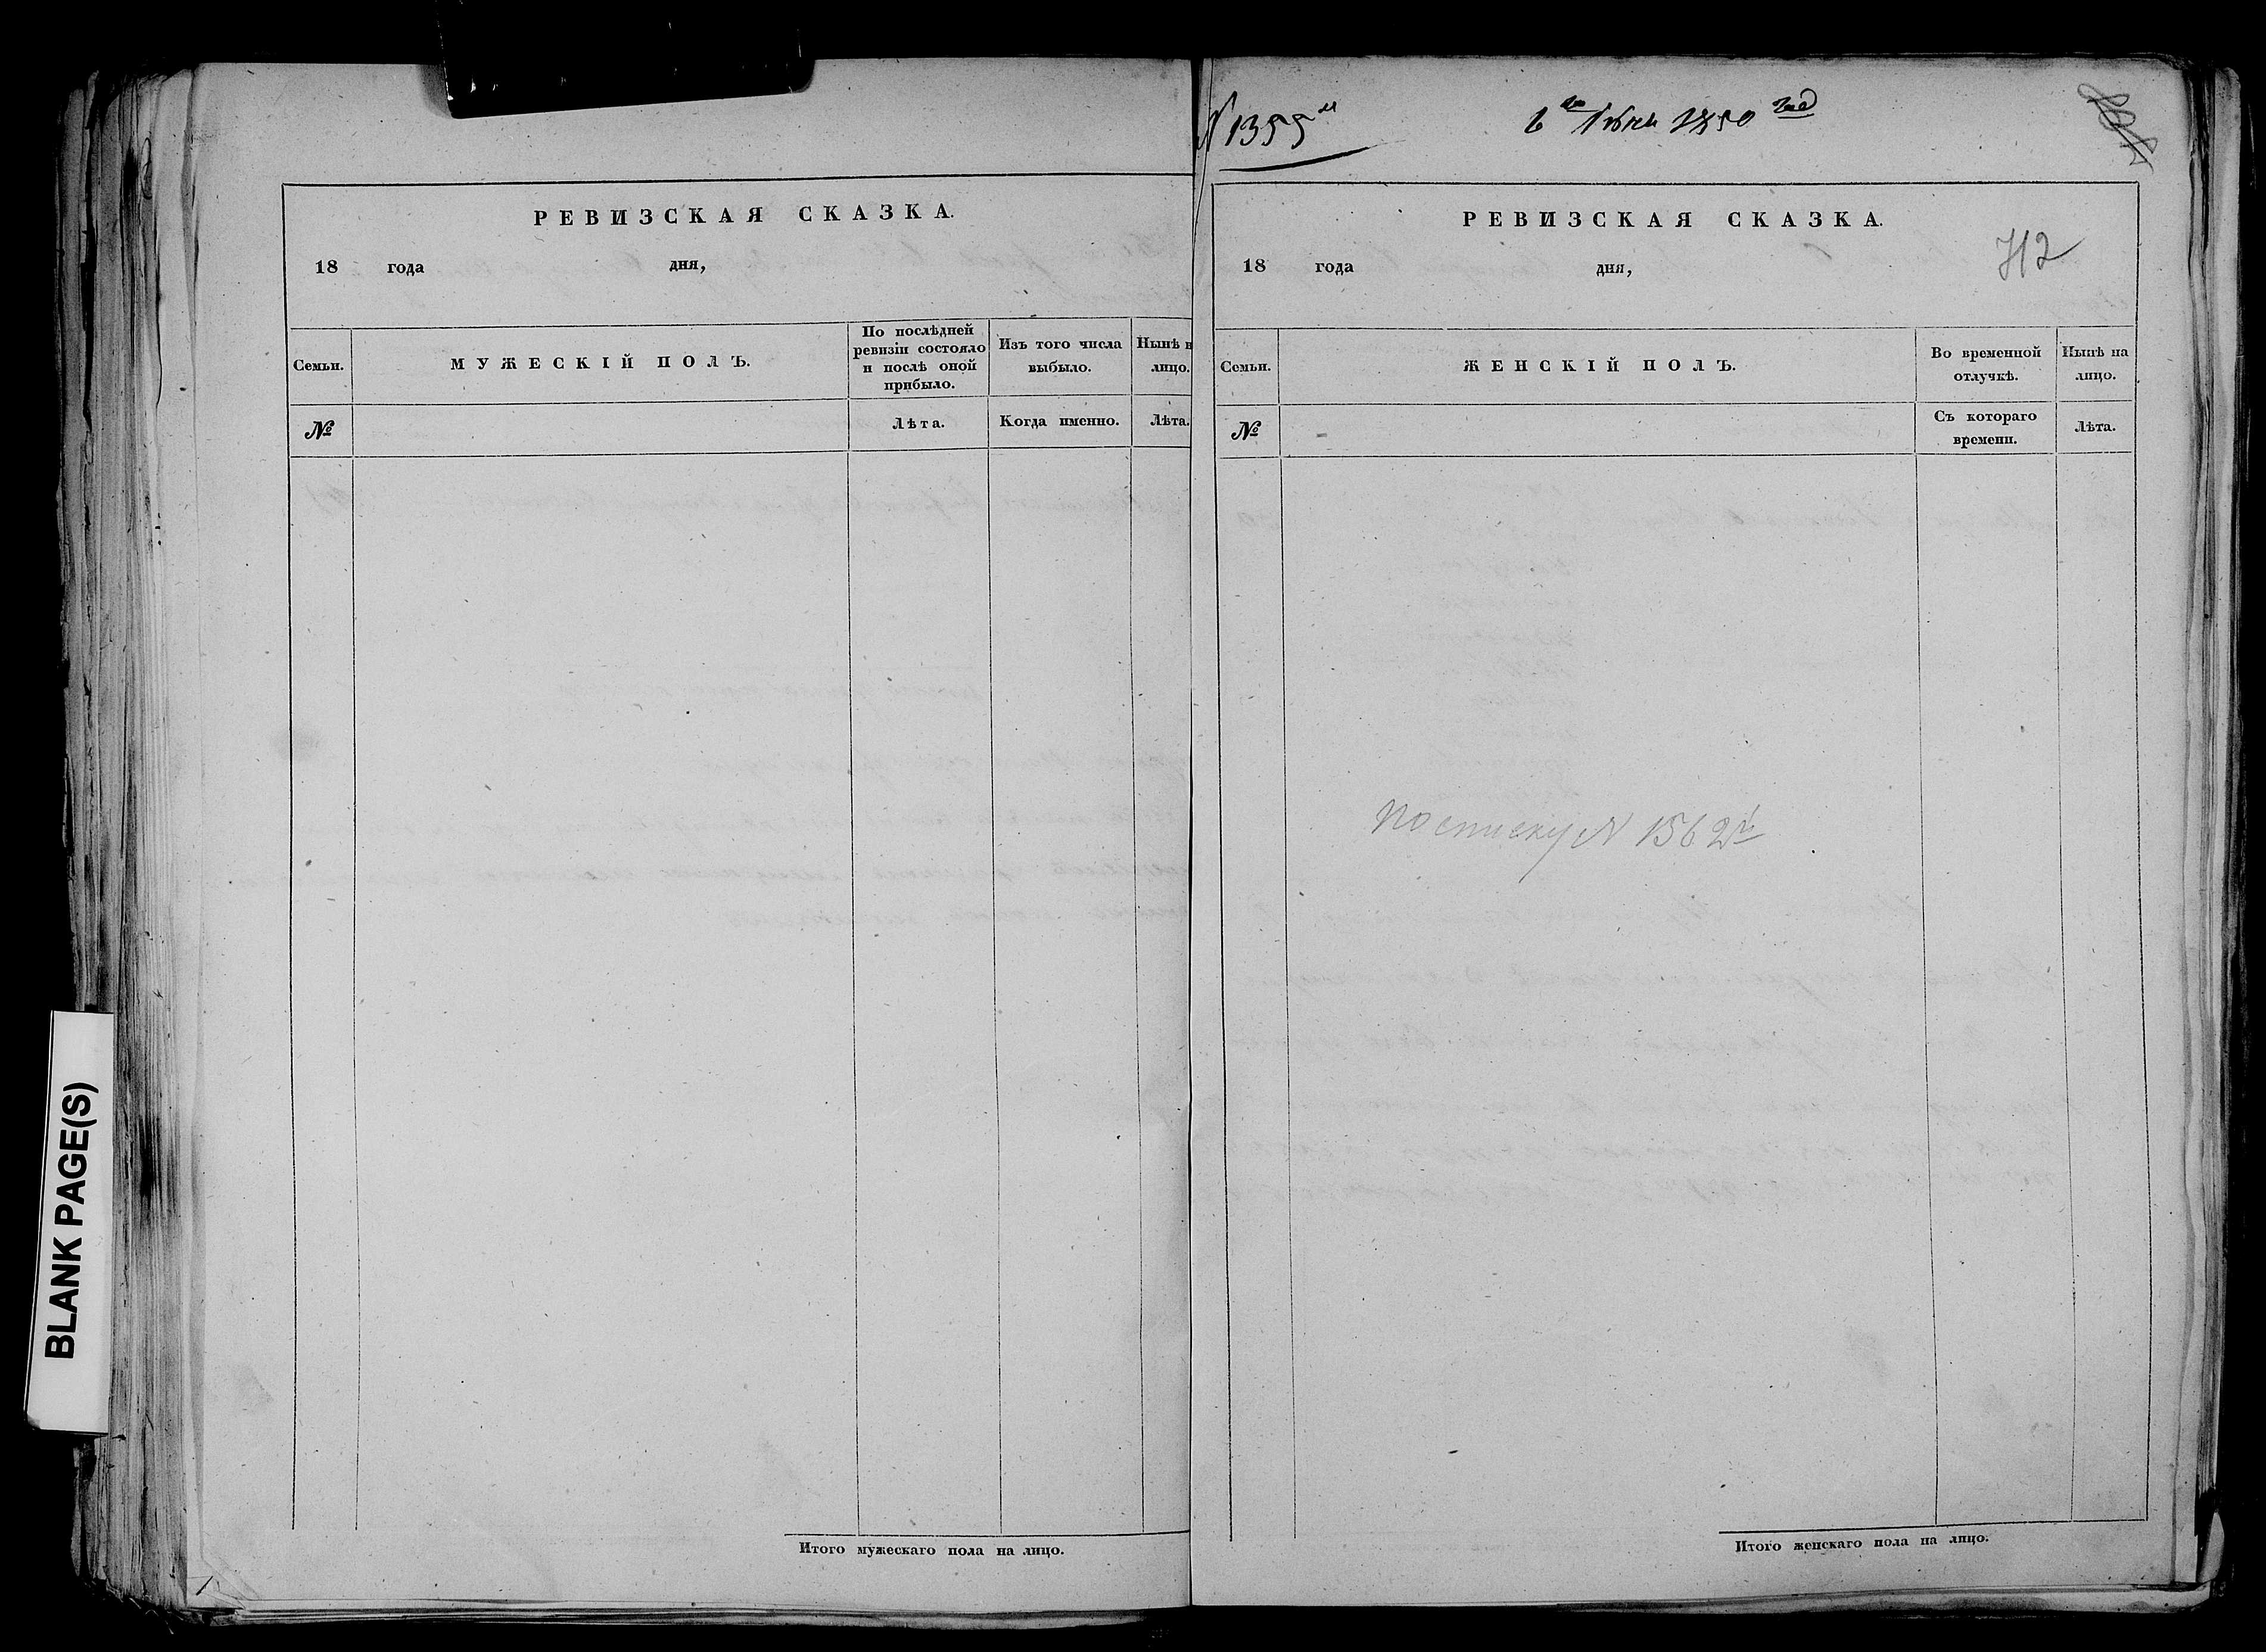 РЕВИЗСКАЯ СКАЗКА.
18 года дня,
Семьи.
МУЖЕСКІЙ ПОЛЪ.
По послѣдней ревизіи состояло и послѣ оной прибыло.
Изъ того числа выбыло.
Нынѣ н
лицо.
№
Лѣта.
Когда именно.
Лѣта.
Итого мужескаго пола на лицо.
BLANK PAGE(S)
N 1355й
6го 1850 год
РЕВИЗСКАЯ СКАЗКА.
712
18 года дня,
Семьи.
ЖЕНСКІЙ ПОЛЪ.
Во временной отлучкѣ.
Нынѣ на лицо.
№
Съ котораго времени.
Лѣта.
По списку N 1562й
Итого женскаго пола на лицо.